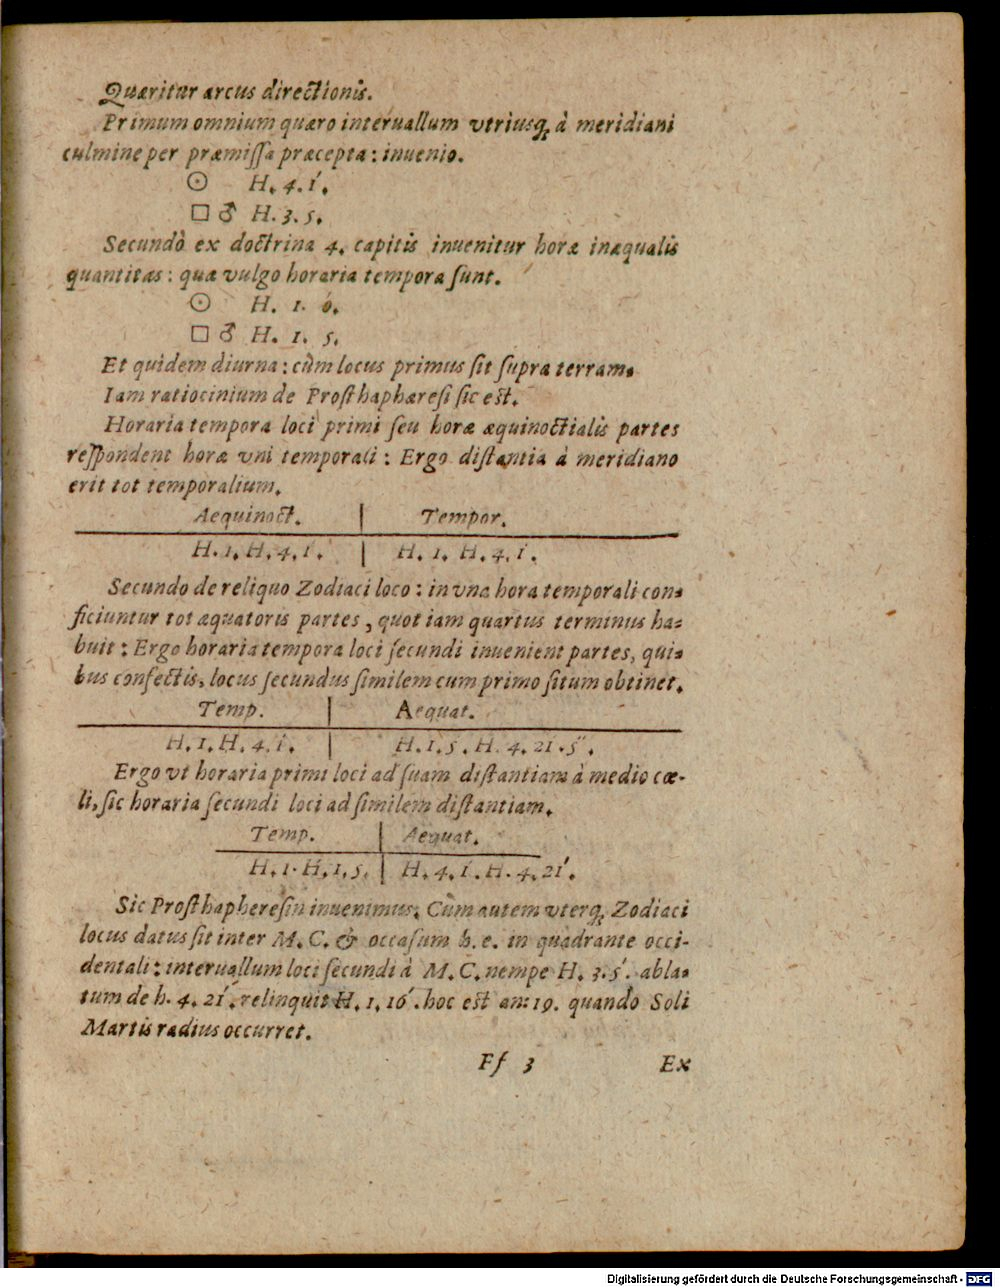 Quæritur arcus directionis.
Primum omnium quæro interuallum vtriusq́; à meridiani
culmine per præmissa præcepta: inuenio.
☉ H. 4. 1́.
□ ♂ H. 3. 5.
Secundò ex doctrina 4. capitis inuenitur horæ inæqualis
quantitas: quæ vulgo horaria tempora sunt.
☉ H. 1. ó.
□ ♂ H. 1. 5.
Et quidem diurna: cùm locus primus sit supra terram.
Iam ratiocinium de Prosthaphæresi sic est.
Horaria tempora loci primi seu horæ æquinoctialis partes
respondent horæ vni temporali: Ergo distantia à meridiano
erit tot temporalium.
Aequinoct. | Tempor.
H. 1. H. 4. 1́. | H. 1. H. 4. 1́.
Secundo de reliquo Zodiaci loco: in vna hora temporali con-
ficiuntur tot æquatoris partes, quot iam quartus terminus ha-
buit: Ergo horaria tempora loci secundi inuenient partes, qui-
bus confectis, locus secundus similem cum primo situm obtinet.
Temp. | Aequat.
H. 1. H. 4. 1́. | H. 1. 5. H. 4. 21. 5̋.
Ergo vt horaria primi loci ad suam distantiam à medio cœ-
li, sic horaria secundi loci ad similem distantiam.
Temp. | Aequat.
H. 1. H. 1. 5. | H. 4. 1́. H. 4. 21́.
Sic Prosthapheresin inuenimus. Cùm autem vterq́; Zodiaci
locus datus sit inter M. C. & occasum h. e. in quadrante occi-
dentali: interuallum loci secundi à M. C. nempe H. 3. 5́. abla-
tum de h. 4. 21́. relinquit H. 1. 16́. hoc est an: 19. quando Soli
Martis radius occurret.
Ff 3 Ex
Digitalisierung gefördert durch die Deutsche Forschungsgemeinschaft - DFG